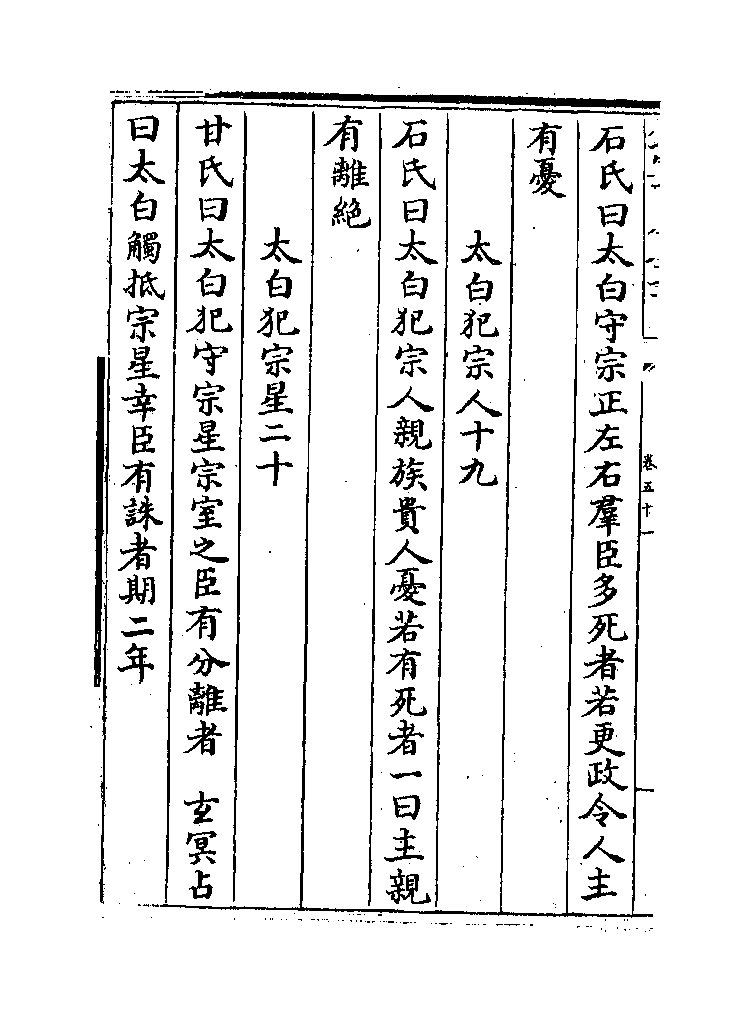 卷五十一
石氏曰太白守宗正左右羣臣多死者若更政令人主
有憂
太白犯宗人十九
石氏曰太白犯宗人親族貴人憂若有死者一曰主親
有離絶
太白犯宗星二十
甘氏曰太白犯守宗星宗室之臣有分離者　玄冥占
曰太白觸抵宗星幸臣有誅者期二年